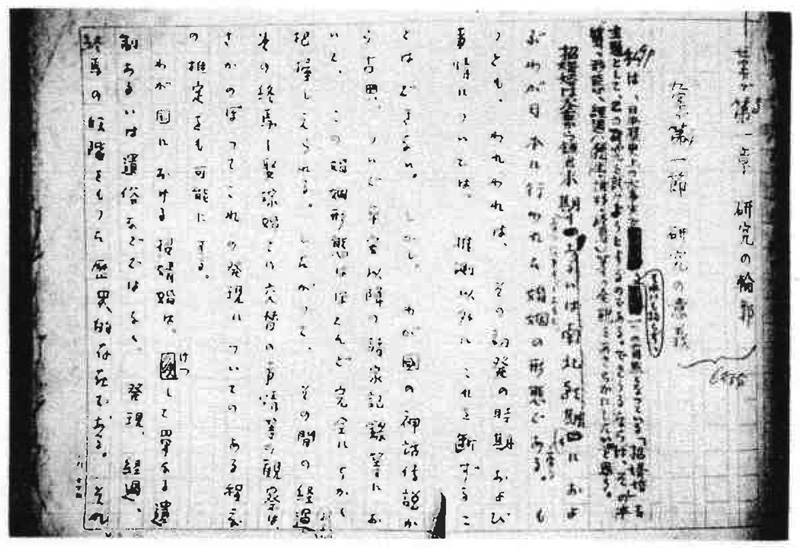 第一章 研究の輪郭
第一節 研究の意義
私は、日本歴史上の
主題として、この研究を試みようとするのである。できうるならば、その本
質、形態、経過、発生消滅の諸事情等の全貌をあきらかにしたいと思う。
招婿婚は太古から鎌倉末期―あるいは南北朝期―におよ
ぶわが日本に行われた婚姻の形態である。も
っとも、われわれは、その初発の時期および
事情については、推測以外に、これを断ずるこ
とはできない。しかし、わが国の神話伝説か
ら古典、ついで平安以降の諸家記録等にお
いて、この婚姻形態はほとんど完全にちかく
把握しえられる。したがって、その間の経過
その終焉―娶嫁婚との交替の事情等の観察は、
さかのぼってこれの発現についてのある程度
の推定をも可能にする。
わが国における招婿婚は、けつして単なる遺
制あるいは遺俗などではなく、発現、経過、
終焉の段階をもった歴史的存在である。それ